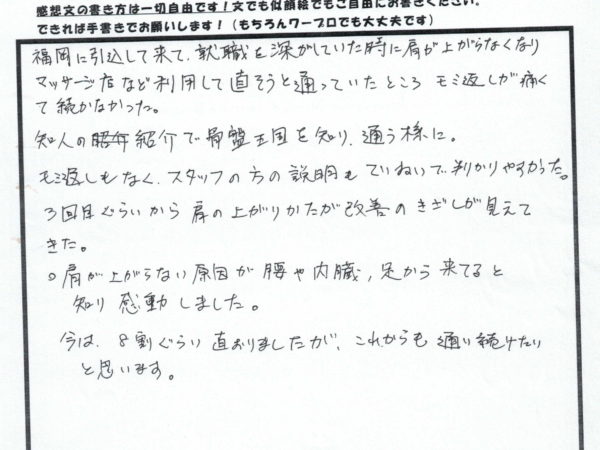 感想文の書き方は一切自由です！文でも似顔絵でもご自由にお書きください。
できれば手書きでお願いします！（もちろんワープロでも大丈夫です）
福岡に引込して来て、就職を深がしていた時に肩が上がらなくなり
マッサージ店など利用して直そうと通っていたところ モミ返しが痛く
て続かなかった。
知人の紹介で骨盤王国を知り、通う様に。
モミ返しもなく、スタッフの方の説明もていねいで判かりやすかった。
3回目ぐらいから肩の上がりかたが改善のきざしが見えて
きた。
○肩が上がらない原因が腰や内臓，足から来てると
知り感動しました。
今は、8割ぐらい直おりましたが、これからも通い続けたい
と思います。